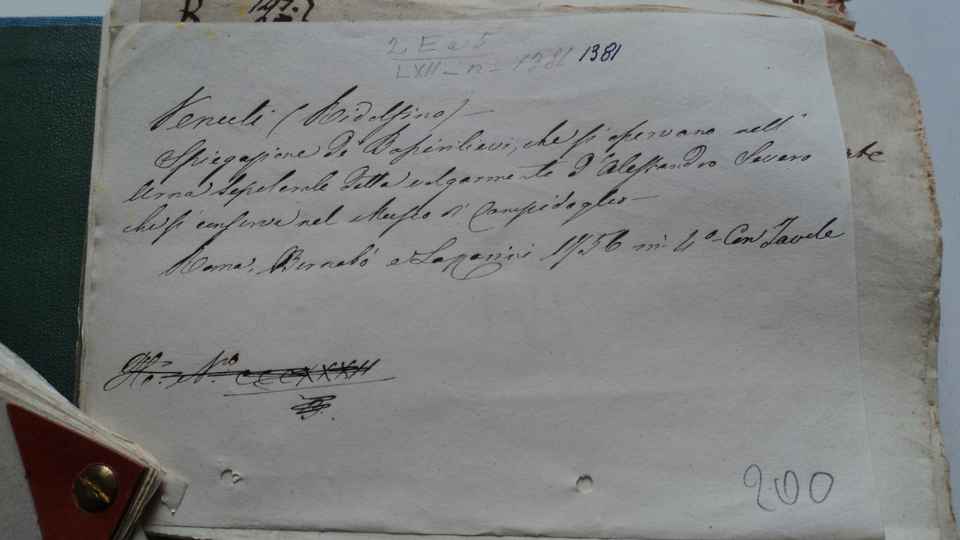 R
2 E a 5
LXII - n - 1381 1381
Venuti (Ridolfino) -
Spiegazione de' Bassirilievi, che si osservano nell'
Urna sepolcrale detta volgarmente d'Alessandro Severo
che si conserva nel Museo di Campidoglio -
Roma, Bernabò e Lazzarini 1756 in 4º Con Tavole
Nro CCCXXXII
200